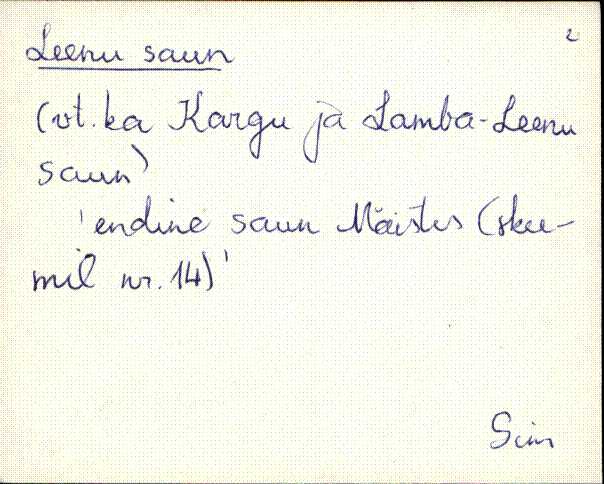 2
Leenu saun
(vt. ka Kargu ja Lamba-Leenu
saun)
'endine saun Mõistes (skee-
mil nr. 14)'